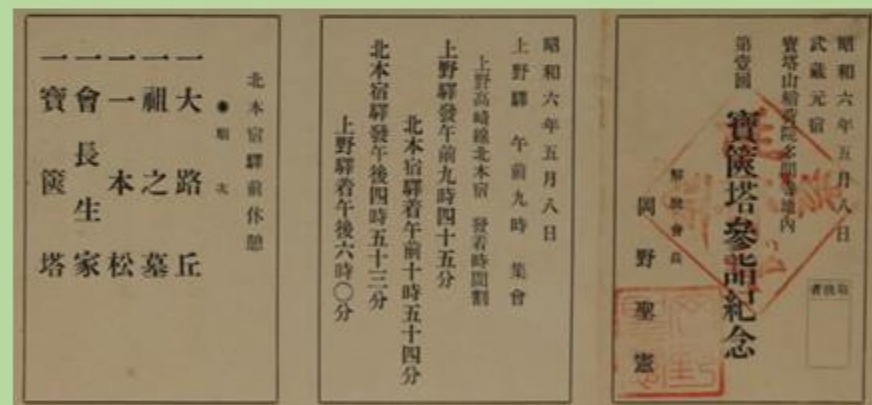 昭和六年五月八日
武蔵元宿
寶塔山
多聞寺境内
第壹回 寶篋塔參詣紀念
解脱會長
岡野聖憲
昭和六年五月八日
上野驛 午前九時 集會
上野高崎線北本宿 發着時間割
上野驛發午前九時四十五分
北本宿驛着午前十時五十四分
北本宿驛發午後四時五十三分
上野驛着午後六時〇分
北本宿驛前休憩
●順次
一大路丘
一祖之墓
一一本松
一會長生家
一寶篋塔